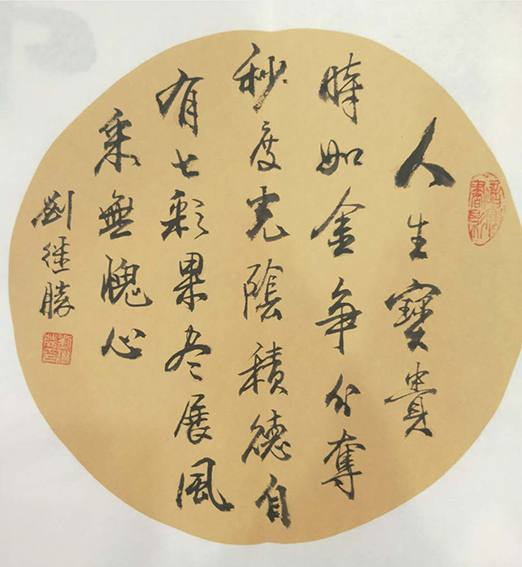 人生寶貴
時如金争分奪
秒度光陰積德自
有七彩果尽展風
采無愧心
劉継勝